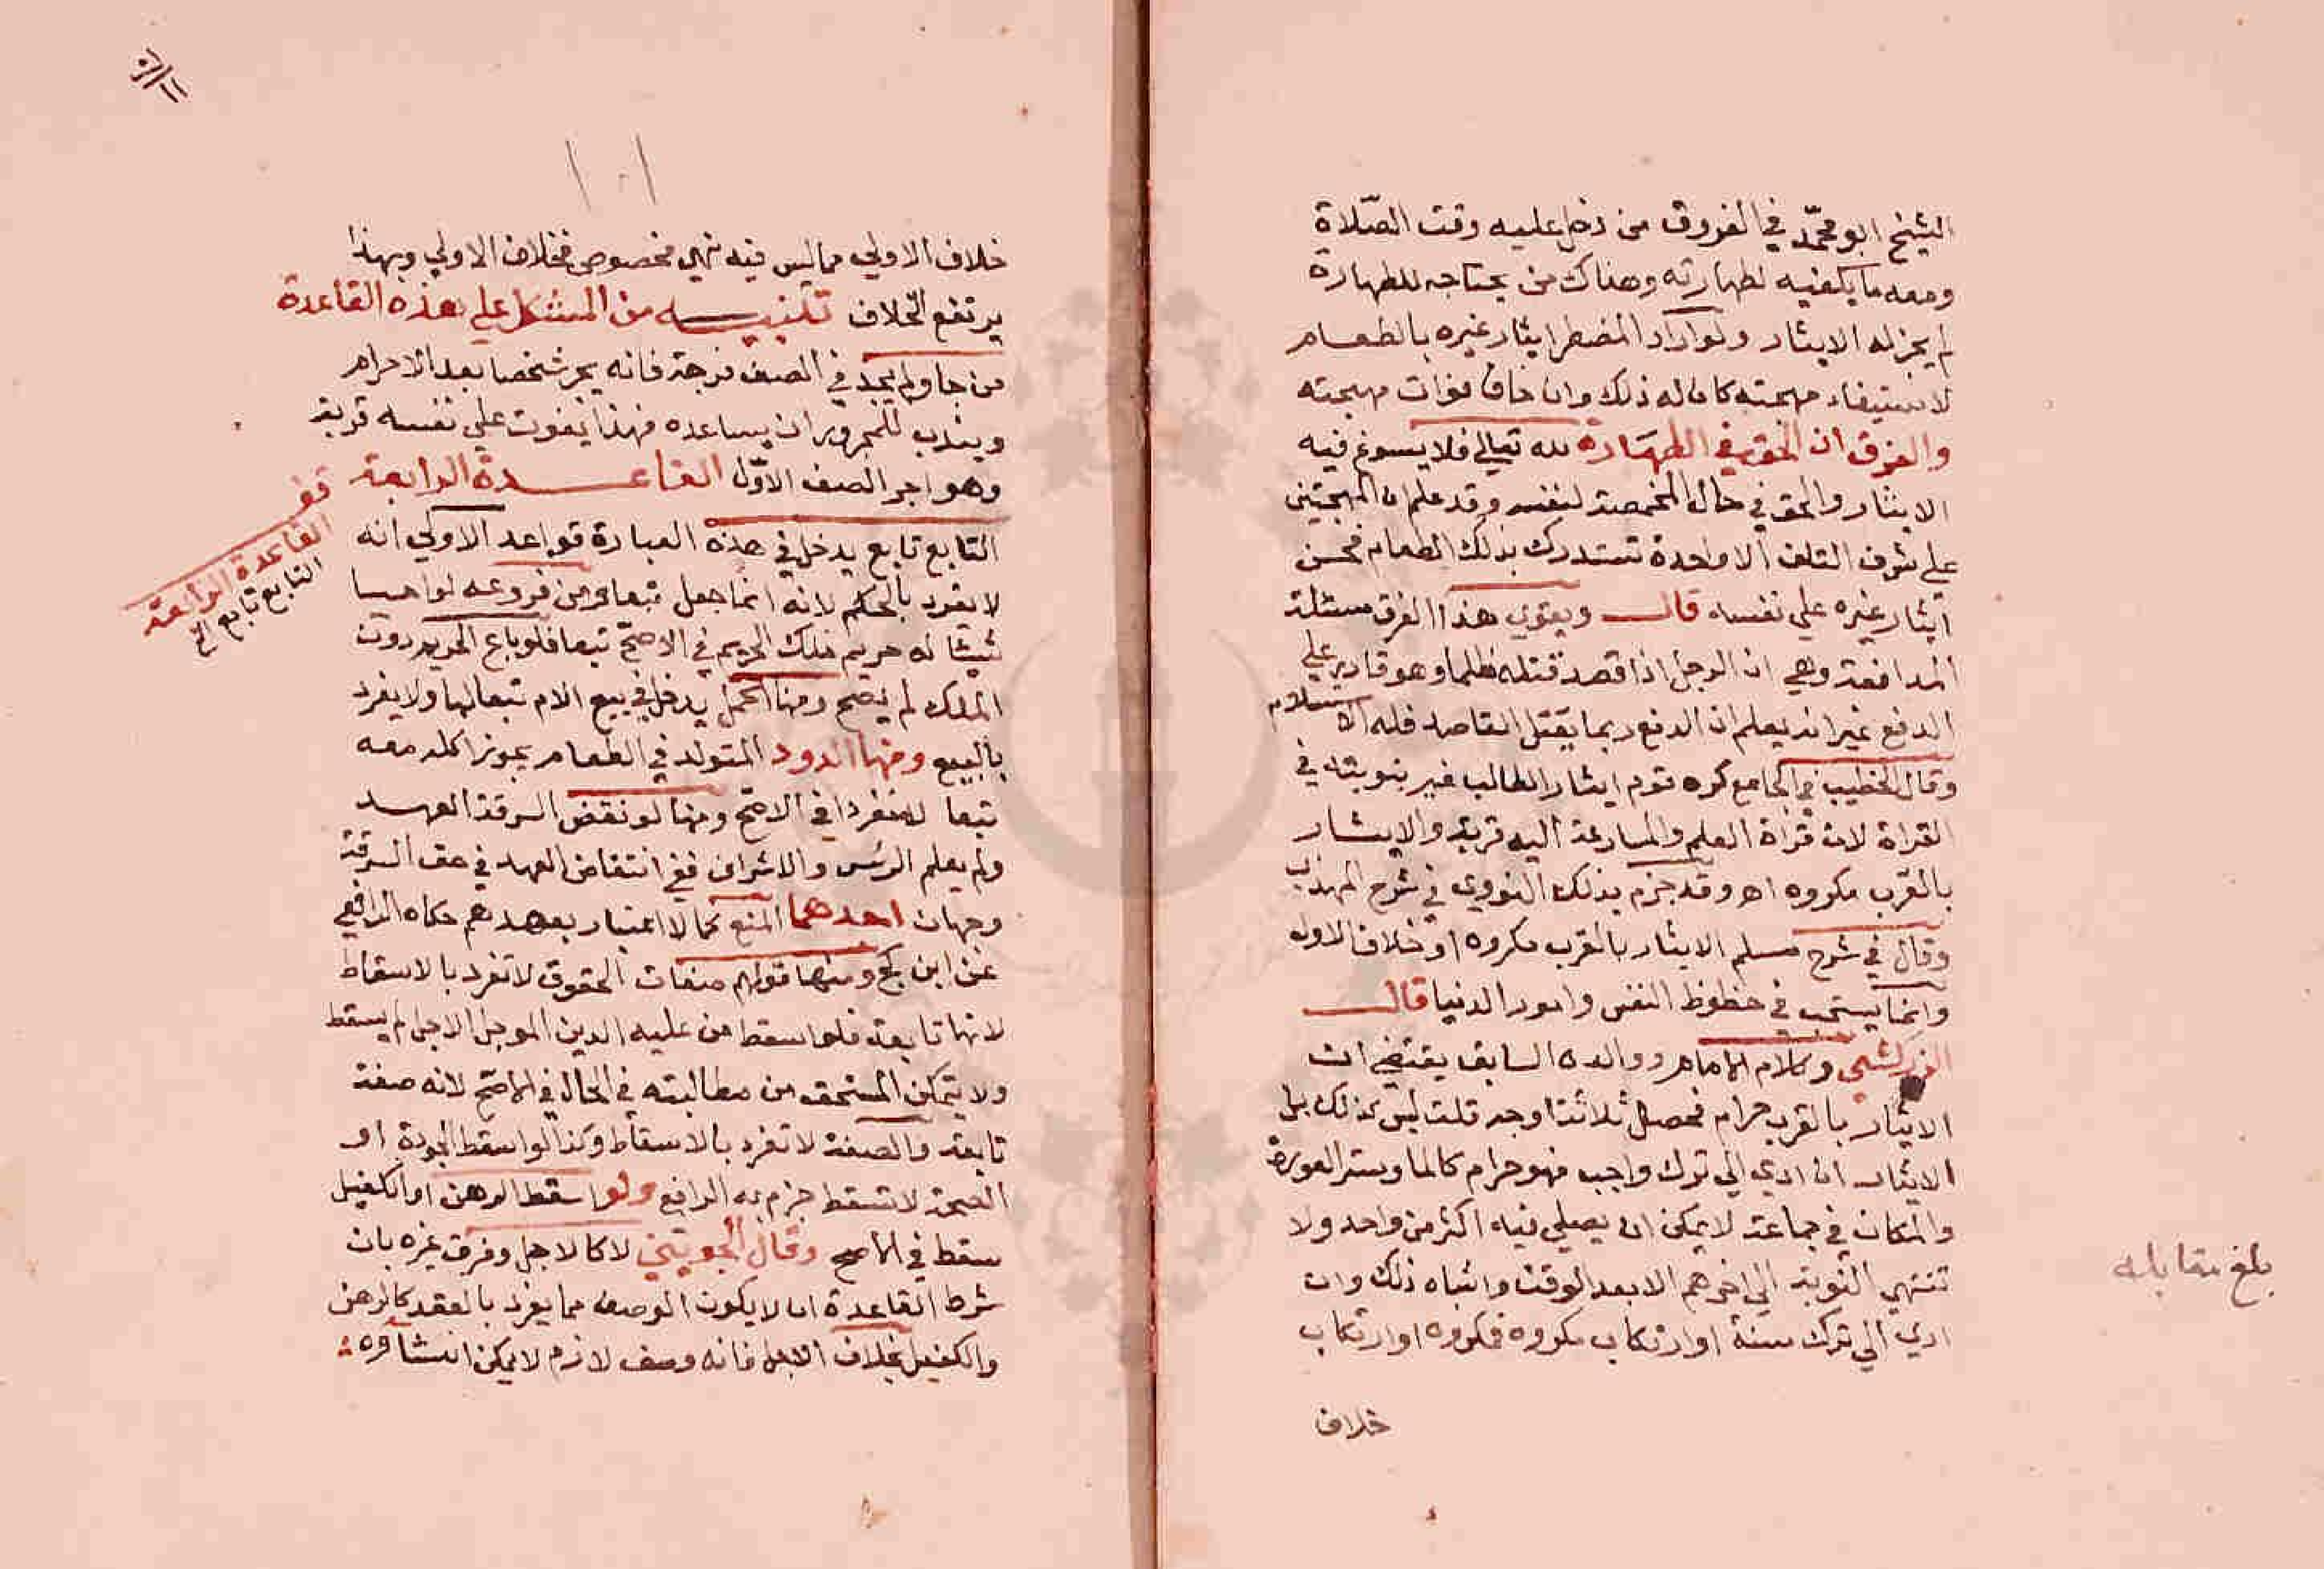 الشيخ ابو محمّد في الفروق من دخل عليه وقت الصّلاة
ومعه ما يكفيه لطهارته وهناك من يحتاجه للطهارة
لم يجز له الايثار ولو اراد المضطر ايثار غيره بالطعام
لاستبقاء مهجته كان له ذلك وان خاف فوات مهجته
والفرق ان الحق في الطهارة لله تعالى فلا يسوغ فيه
الايثار والحق في حال المخمصة لنفسه وقد علم ان المهجتين
على شرف التلف الا واحدة تستدرك بذلك الطعام فحسن
ايثار غيره على نفسه قال ويقوي هذا الفرق مسئلة
المدافعة وهي ان الرجل اذا قصد قتله ظلما وهو قادر على
الدفع غير انه يعلم ان الدفع ربما يقتل القاصد فله الاستسلام
وقال الخطيب في الجامع كره قوم ايثار الطالب غيره بنوبته في
القراة لان قراة العلم والمسارعة اليه قربة والايثار
بالقرب مكروه اه وقد جزم بذلك النووي في شرح المهذب
وقال في شرح مسلم الايثار بالقرب مكروه او خلاف الاولى
وانما يستحب في حظوظ النفس وامور الدنيا قال
الزركشي وكلام الامام ووالده السابق يقتضي ان
الايثار بالقرب حرام فحصل ثلاثة اوجه قلت ليس كذلك بل
الايثار ان ادي الى ترك واجب فهو حرام كالما وستر العورة
والمكان في جماعة لا يمكن ان يصلي فيه اكثر من واحد ولا
تنتهي النوبة الى اخرهم الا بعد الوقت واشباه ذلك وان
ادي الى ترك سنة او ارتكاب مكروه فمكروه او ارتكاب
خلاف
بلغ مقابله
١٠١
خلاف الاولى مما ليس فيه نهي مخصوص فخلاف الاولى وبهذا
يرتفع الخلاف تنبيه من المشكل على هذه القاعدة
من جا ولم يجد في الصف فرجة فانه يجر شخصا بعد الاحرام
ويندب للمجرور ان يساعده فهذا يفوت على نفسه قربة
وهو اجر الصف الاول القاعدة الرابعة
التابع تابع يدخل في هذه العبارة قواعد الاولى انه
لا يفرد بالحكم لانه انما جعل تبعا ومن فروعه لو احيا
شيئا له حريم ملك الحريم في الاصح تبعا فلو باع الحريم دون
الملك لم يصح ومنها الحمل يدخل في بيع الام تبعا لها ولا يفرد
بالبيع ومنها الدود المتولد في الطعام يجوز اكله معه
تبعا لا منفردا في الاصح ومنها لو نقض السرقة العهد
ولم يعلم الرئس والاشراف ففي انتقاض العهد في حق السرقة
وجهان احدهما المنع كما لا اعتبار بعهدهم حكاه الرافعي
عن ابن كج ومنها قولهم صفات الحقوق لا تفرد بالاسقاط
لانها تابعة فلو اسقط من عليه الدين الموجل الاجل لم يسقط
ولا يتمكن المستحق من مطالبته في الحال في الاصح لانه صفة
تابعة والصفة لا تفرد بالاسقاط وكذا لو اسقط الجودة او
الصحة لا تسقط جزم به الرافعي ولو اسقط الرهن او الكفيل
سقط في الاصح وقال الجويني لا كالاجل وفرق غيره بان
شرط القاعدة ان لا يكون الوصف مما يفرد بالعقد كالرهن
والكفيل بخلاف الاجل فانه وصف لازم لا يمكن انشاؤه
قف
القاعدة الرابعة
التابع تابع الخ